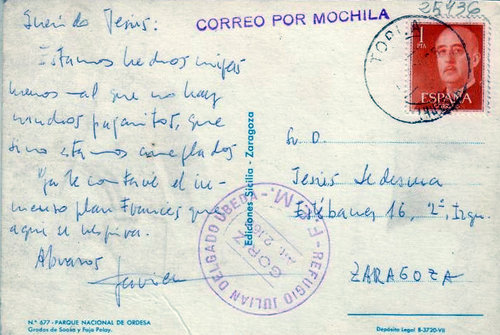 25436
CORREO POR MOCHILA
Querido Jesus:
Estamos hechos unos
menos mal que no hay
muchos pajaritos, que
sino estamos arreglados
Ya te contaré el in-
menso plan Frances que
aqui se respira.
Abrazos
Javier
Nº 677 - PARQUE NACIONAL DE ORDESA
Gradas de Soaso y Faja Pelay.
Ediciones Sicilia - Zaragoza
REFUGIO JULIAN DELGADO UBEDA
F M
GORIZ
TORLA
1
PTA
ESPAÑA
CORREOS
Sr. D.
Jesús Ledesma
Estébanes 16, 2º, Izq.
ZARAGOZA
Depósito Legal B-3720-VII